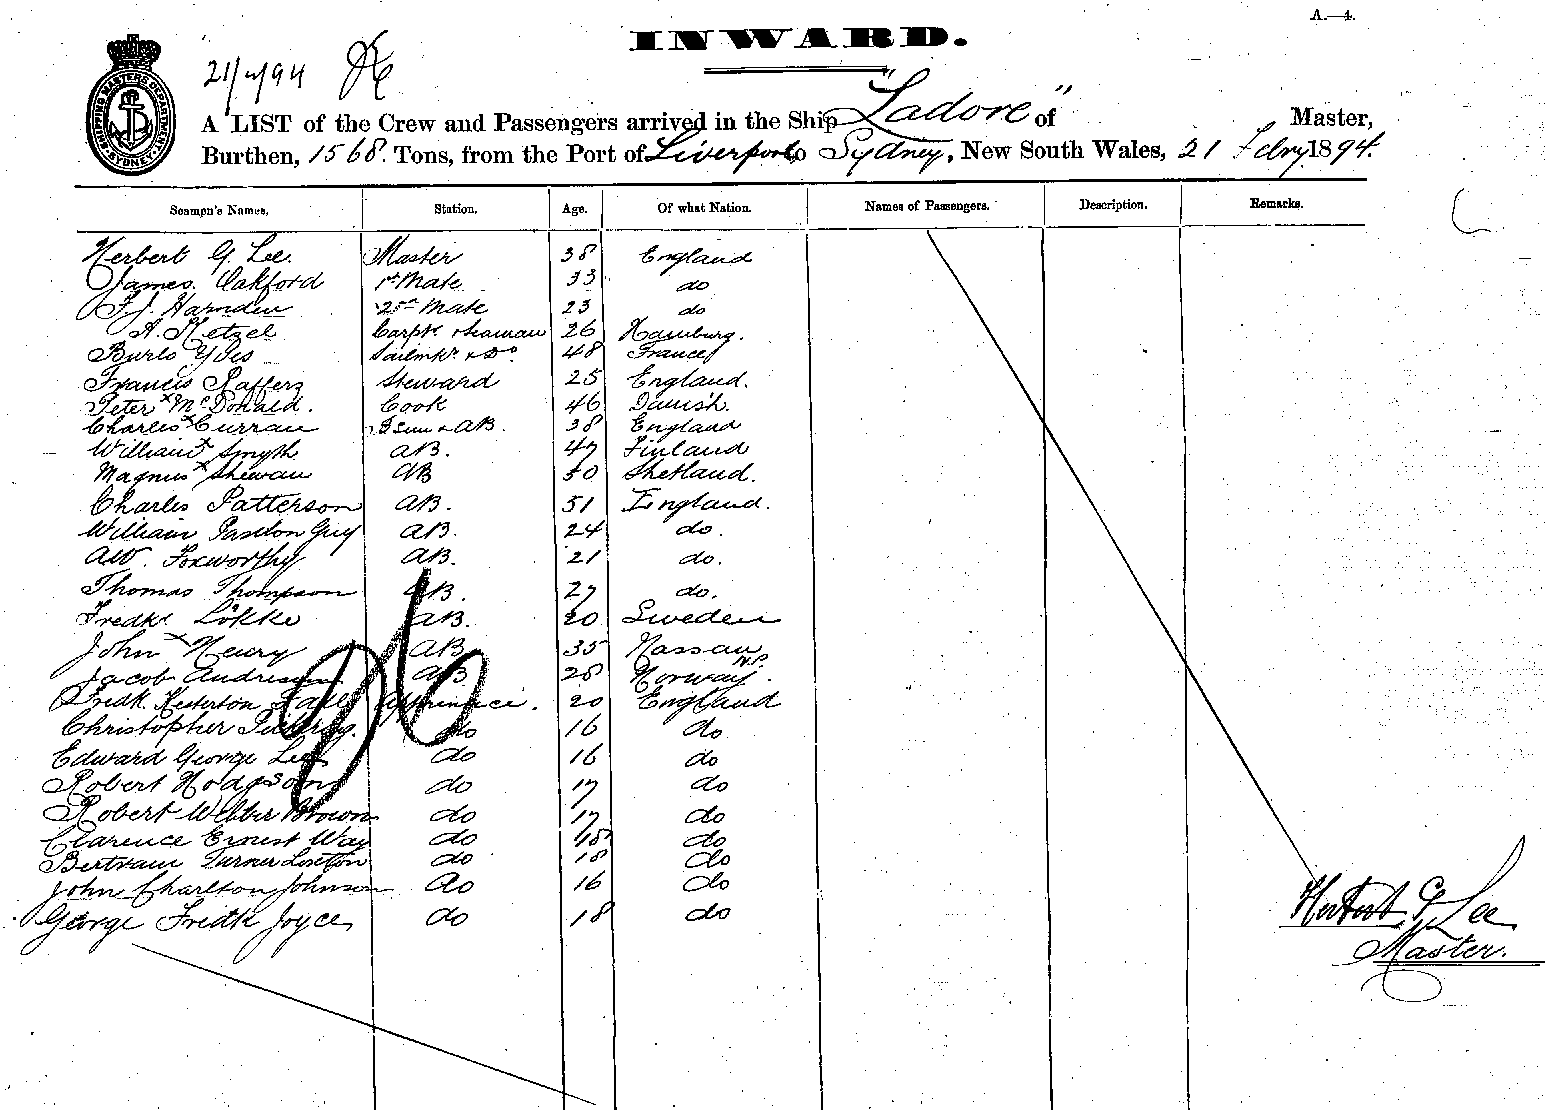 A.—4.
INWARD.
21/2/94
SHIPPING MASTERS DEPARTMENT SYDNEY
A LIST of the Crew and Passengers arrived in the Ship "Ladore" of Master,
Burthen, 1568 Tons, from the Port of Liverpool to Sydney, New South Wales, 21 Febry 1894.
Seamen's Names. Station. Age. Of what Nation. Names of Passengers. Description. Remarks.
Herbert G. Lee. Master 38 England
James Oakford 1st Mate 33 do
F. J. Harnden 2nd Mate 23 do
A. Hetzel Carptr & Seaman 26 Hamburg.
Burlo Yves Sailmkr & Do 48 France
Francis Raffery Steward 25 England.
Peter x McDonald. Cook 46 Danish.
Charles x Curran & AB. 38 England
William x Smyth AB. 47 Finland
Magnus x Shewan AB 50 Shetland.
Charles Patterson AB. 51 England.
William Paston Guy AB. 24 do.
AW. Foxworthy AB. 21 do.
Thomas Thompson AB. 27 do.
Fredk Lökke AB. 20 Sweden
John x Henry AB 35 Nassau N.P.
Jacob Andresen AB 28 Norway.
Fredk. Hesterton Apprentice. 20 England
Christopher Pickering. do 16 do
Edward George Lee do 16 do
Robert Hodgson do 17 do
Robert Webber Brown do 17 do
Clarence Ernest Way do 18 do
Bertram Turner Loseton do 18 do
John Charlton Johnson do 16 do
George Fredk Joyce do 18 do
Herbert G. Lee
Master.